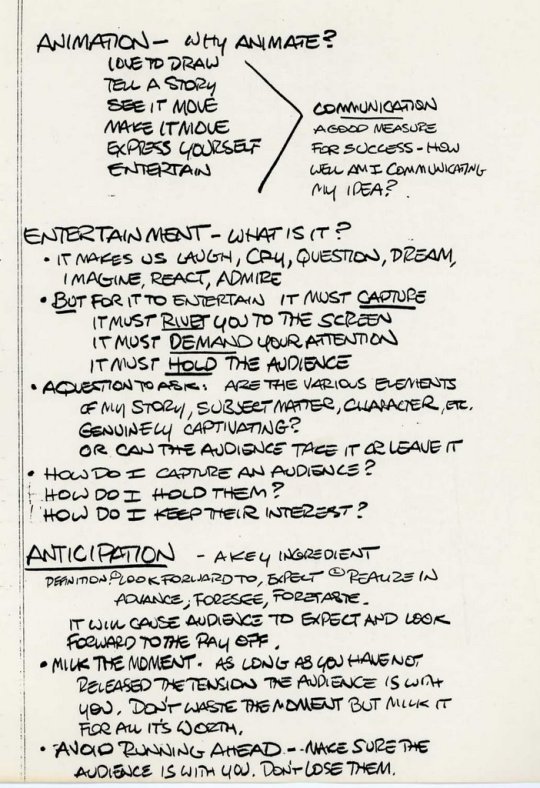 ANIMATION - WHY ANIMATE?
LOVE TO DRAW
TELL A STORY
SEE IT MOVE
MAKE IT MOVE
EXPRESS YOURSELF
ENTERTAIN
COMMUNICATION
A GOOD MEASURE
FOR SUCCESS - HOW
WELL AM I COMMUNICATING
MY IDEA?
ENTERTAINMENT - WHAT IS IT?
• IT MAKES US LAUGH, CRY, QUESTION, DREAM,
IMAGINE, REACT, ADMIRE
• BUT FOR IT TO ENTERTAIN IT MUST CAPTURE
IT MUST RIVET YOU TO THE SCREEN
IT MUST DEMAND YOUR ATTENTION
IT MUST HOLD THE AUDIENCE
• A QUESTION TO ASK: ARE THE VARIOUS ELEMENTS
OF MY STORY, SUBJECT MATTER, CHARACTER, ETC.
GENUINELY CAPTIVATING?
OR CAN THE AUDIENCE TAKE IT OR LEAVE IT
• HOW DO I CAPTURE AN AUDIENCE?
HOW DO I HOLD THEM?
HOW DO I KEEP THEIR INTEREST?
ANTICIPATION - A KEY INGREDIENT
DEFINITION: ① LOOK FORWARD TO, EXPECT ② REALIZE IN
ADVANCE; FORESEE, FORETASTE.
IT WILL CAUSE AUDIENCE TO EXPECT AND LOOK
FORWARD TO THE PAY OFF.
• MILK THE MOMENT. AS LONG AS YOU HAVE NOT
RELEASED THE TENSION THE AUDIENCE IS WITH
YOU. DON'T WASTE THE MOMENT BUT MILK IT
FOR ALL IT'S WORTH.
• AVOID RUNNING AHEAD -- MAKE SURE THE
AUDIENCE IS WITH YOU. DON'T LOSE THEM.